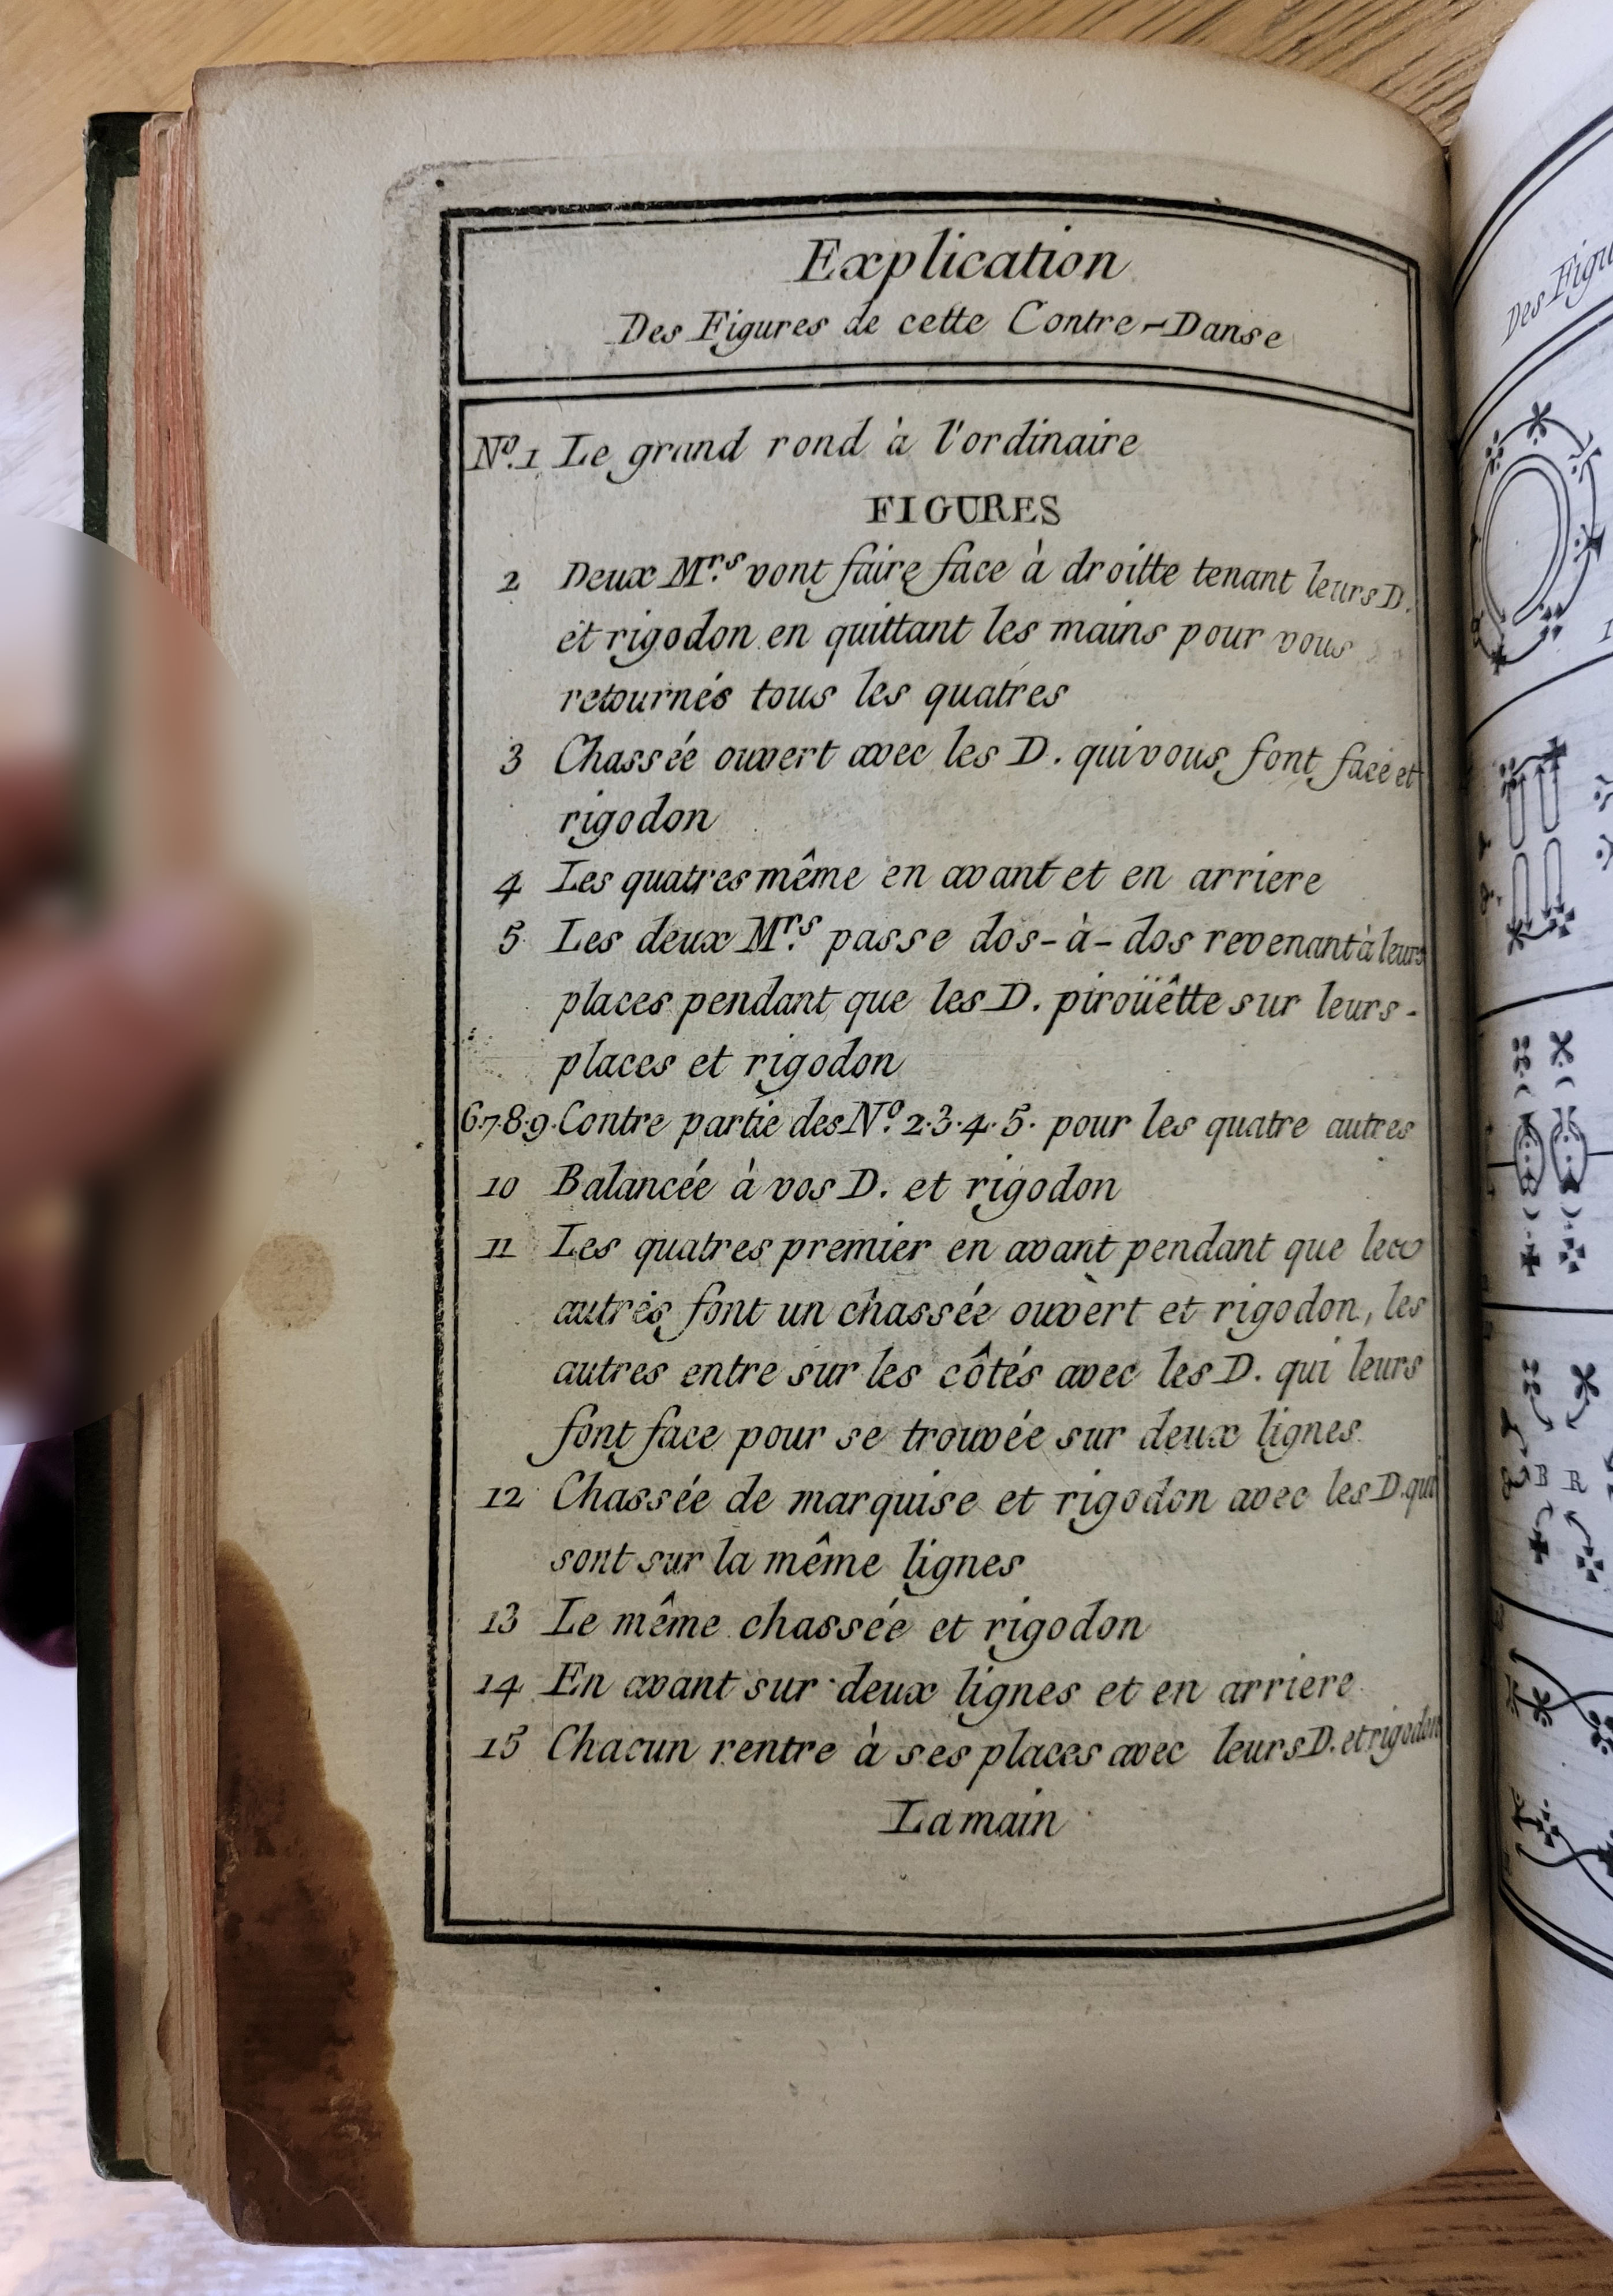 Explication
Des Figures de cette Contre-Danse
Nº.1 Le grand rond à l'ordinaire
FIGURES
2 Deux Mrs. vont faire face à droitte tenant leurs D.
et rigodon en quittant les mains pour vous
retournés tous les quatres
3 Chassée ouvert avec les D. qui vous font face et
rigodon
4 Les quatres même en avant et en arriere
5 Les deux Mrs. passe dos-à-dos revenant à leurs
places pendant que les D. piroüêtte sur leurs-
places et rigodon
6.7.8.9. Contre partie des Nº. 2.3.4.5. pour les quatre autres
10 Balancée à vos D. et rigodon
11 Les quatres premier en avant pendant que les
autrés font un chassée ouvèrt et rigodon, les
autres entre sur les côtés avec les D. qui leurs
font face pour se trouvée sur deux lignes
12 Chassée de marquise et rigodon avec les D. qui
sont sur la même lignes
13 Le même chassée et rigodon
14 En avant sur deux lignes et en arriere
15 Chacun rentre à ses places avec leurs D. et rigodon
La main
Des Figu
B R